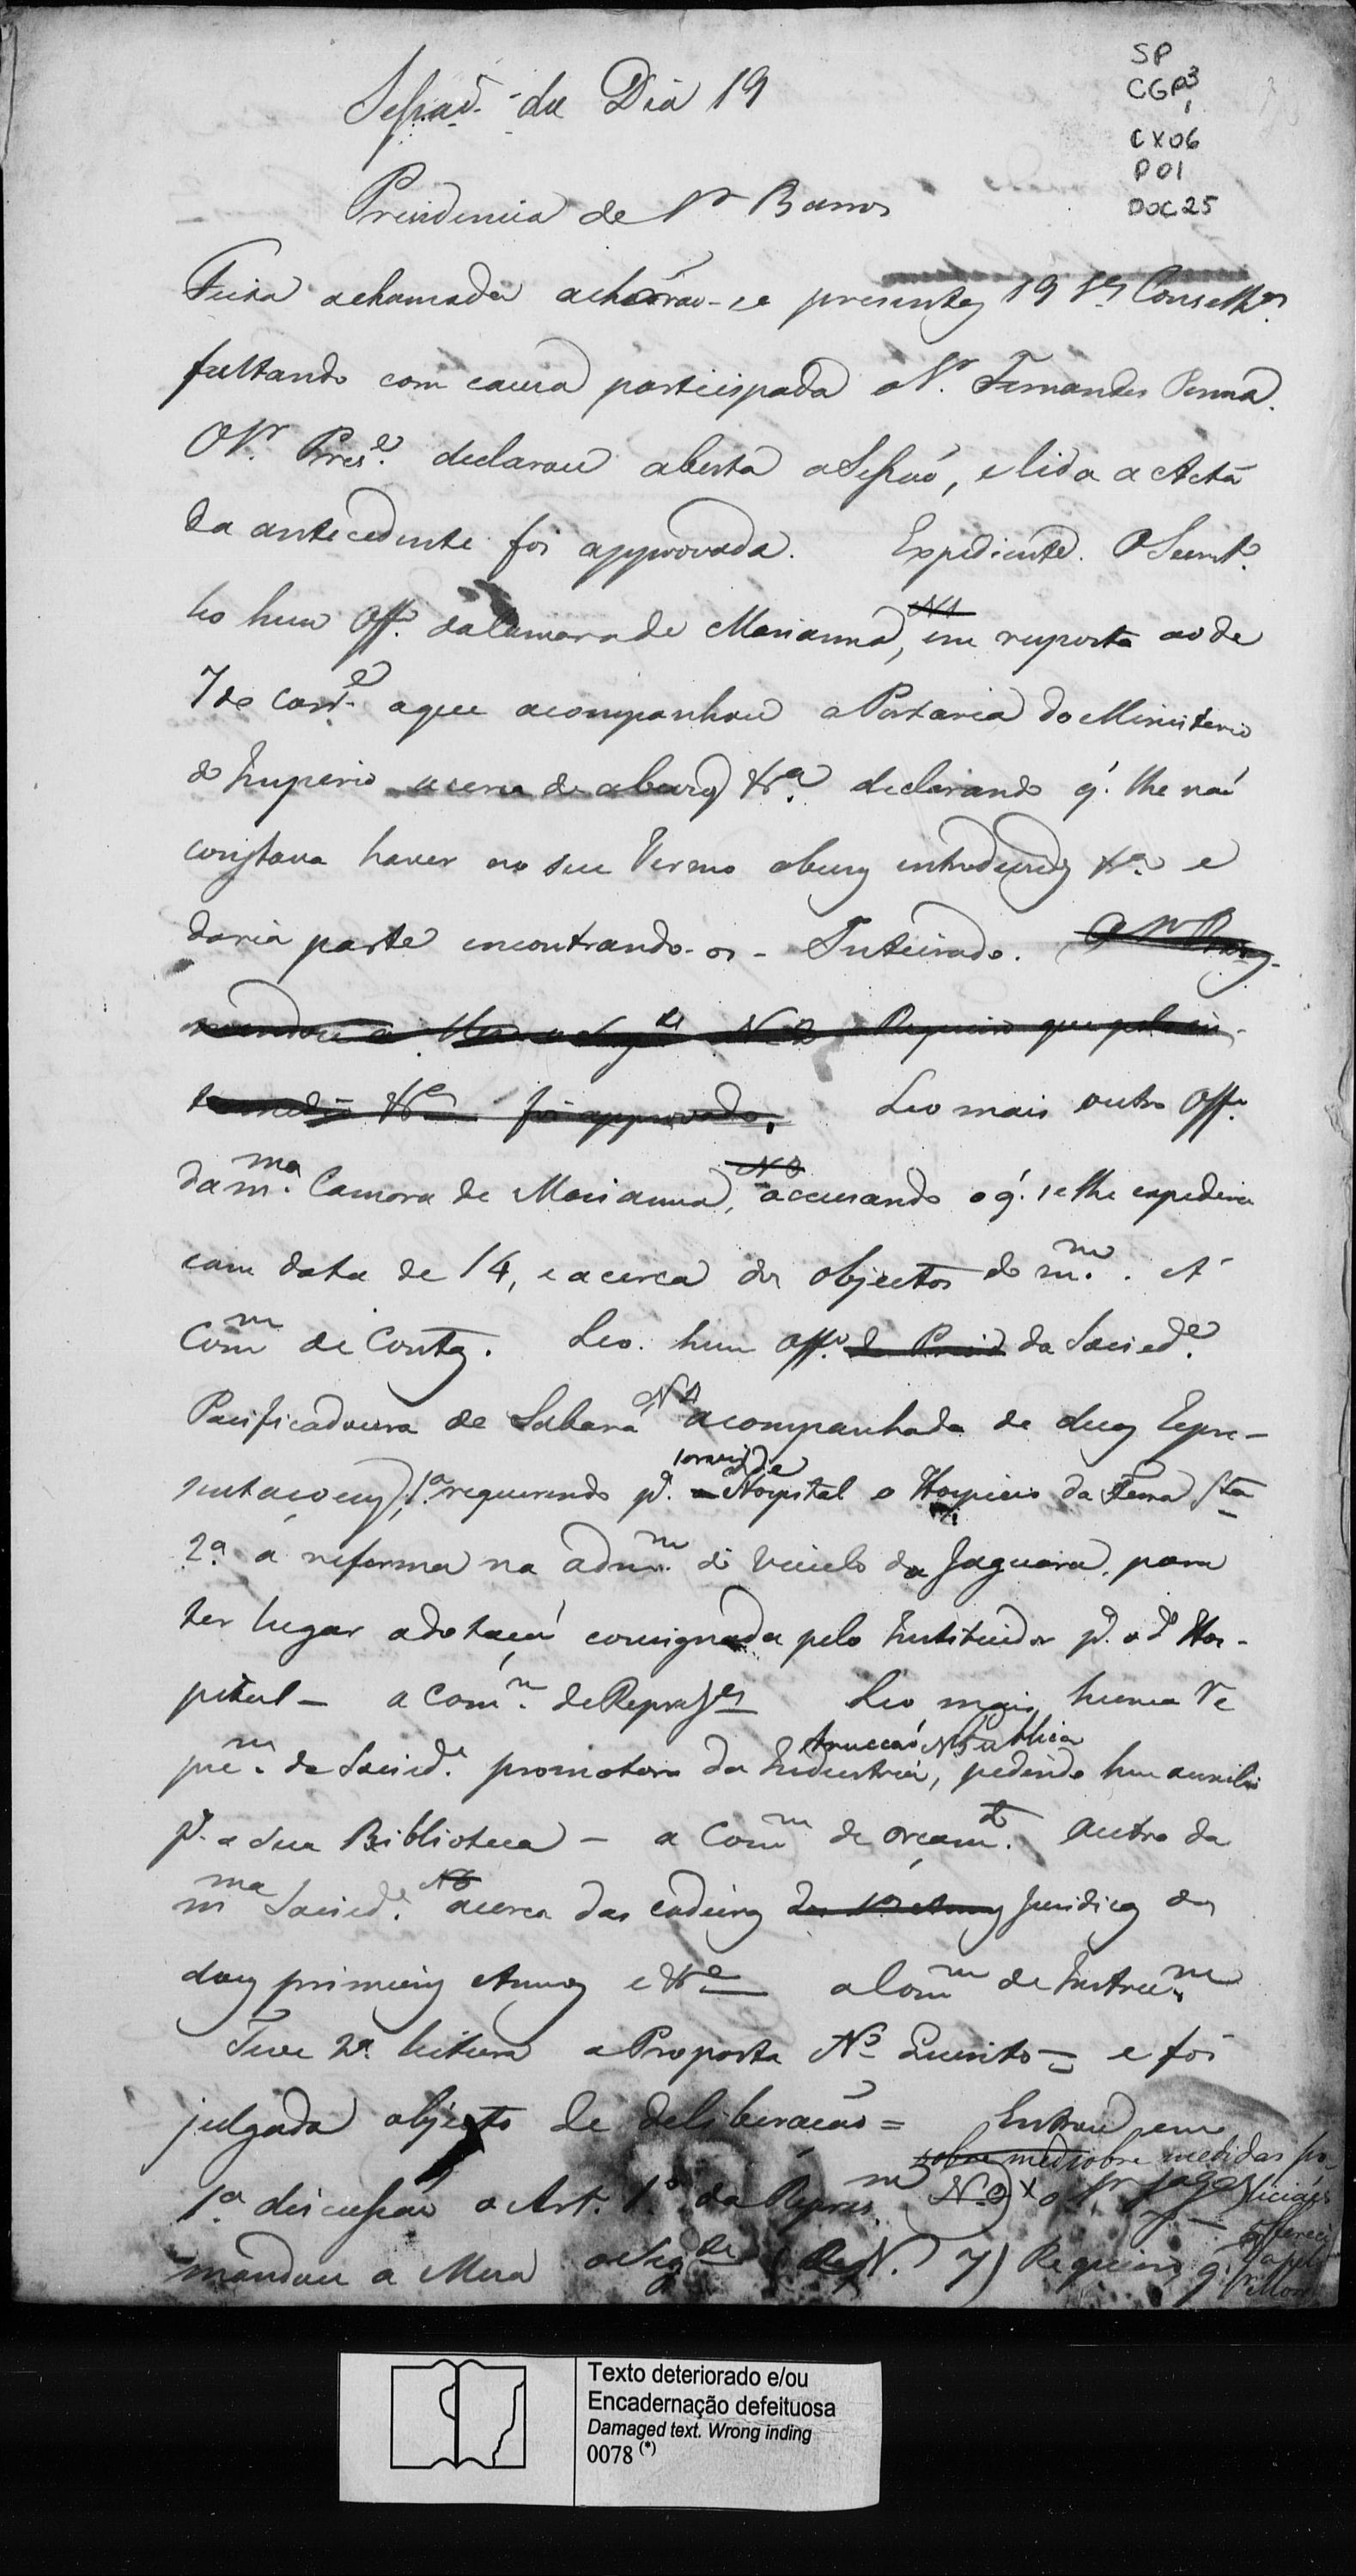 SP
CGP³
1
CX06
P01
DOC25
Sessaõ do Dia 19
Presidencia do Sr Barros
Feita a chamada acháraõ-se presentes 19 Srs Conselhros
faltando com causa participada o Sr. Fernandes Penna.
O Sr. Prese. declarou aberta a Sessaõ, e lida a Acta
da antecedente foi approvada. Expediente. O Secretº
leo hum Offº da Camara de Marianna, N1 em resposta ao de
7 do corre. a que acompanhou a Portaria do Ministerio
do Imperio acerca de abusos &ª declarando q. lhe naõ
constava haver no seu Termo abusos introduzidos &ª e
daria parte encontrando-os - Inteirado. O Sr
mandou a Mesa o Segte N2 Requeiro que pelo in-
termedio &ª foi approvado. Leo mais outro Offº
da mma. Camara de Marianna, N3 accusando o q. se lhe expedira
com data de 14, e acerca dos objectos do mmo. A
Comm de Contas. Leo hum Offº da Sociede
Pacificadoura de Sabará N4 acompanhado de duas Repre-
sentaçoens, 1ª requerendo pª Hospital o Hospicio da Terra Sta
2ª a reforma na admm do Vinculo da Jaguara, para
ter lugar a dotaçaõ consignada pelo Instituidor pª o dº Hos-
pital - a Comm. de Represes Leo mais huma Re
prem da Sociede promotora da Industria, trucçaõ Publica N5 pedindo hum auxilio
pª a sua Bibliotheca - a Comm de orçamto. Outro da
mma Sociede. N6 acerca das cadeiras dos 1os Annos Juridicas dos
dous primeiros Annos e &ª a Comm de Instrucm
Teve 2ª leitura a Proposta Nº Quinto = e foi
julgada objecto de deliberacaõ = Entrou em
sobre med sobre medidas po-
1ª discussaõ o Art. 1º da Represm N.9 x o Sr liciáes
mandou a Mesa o Segte (N. 7) Requeiro q. offereci
da pelo